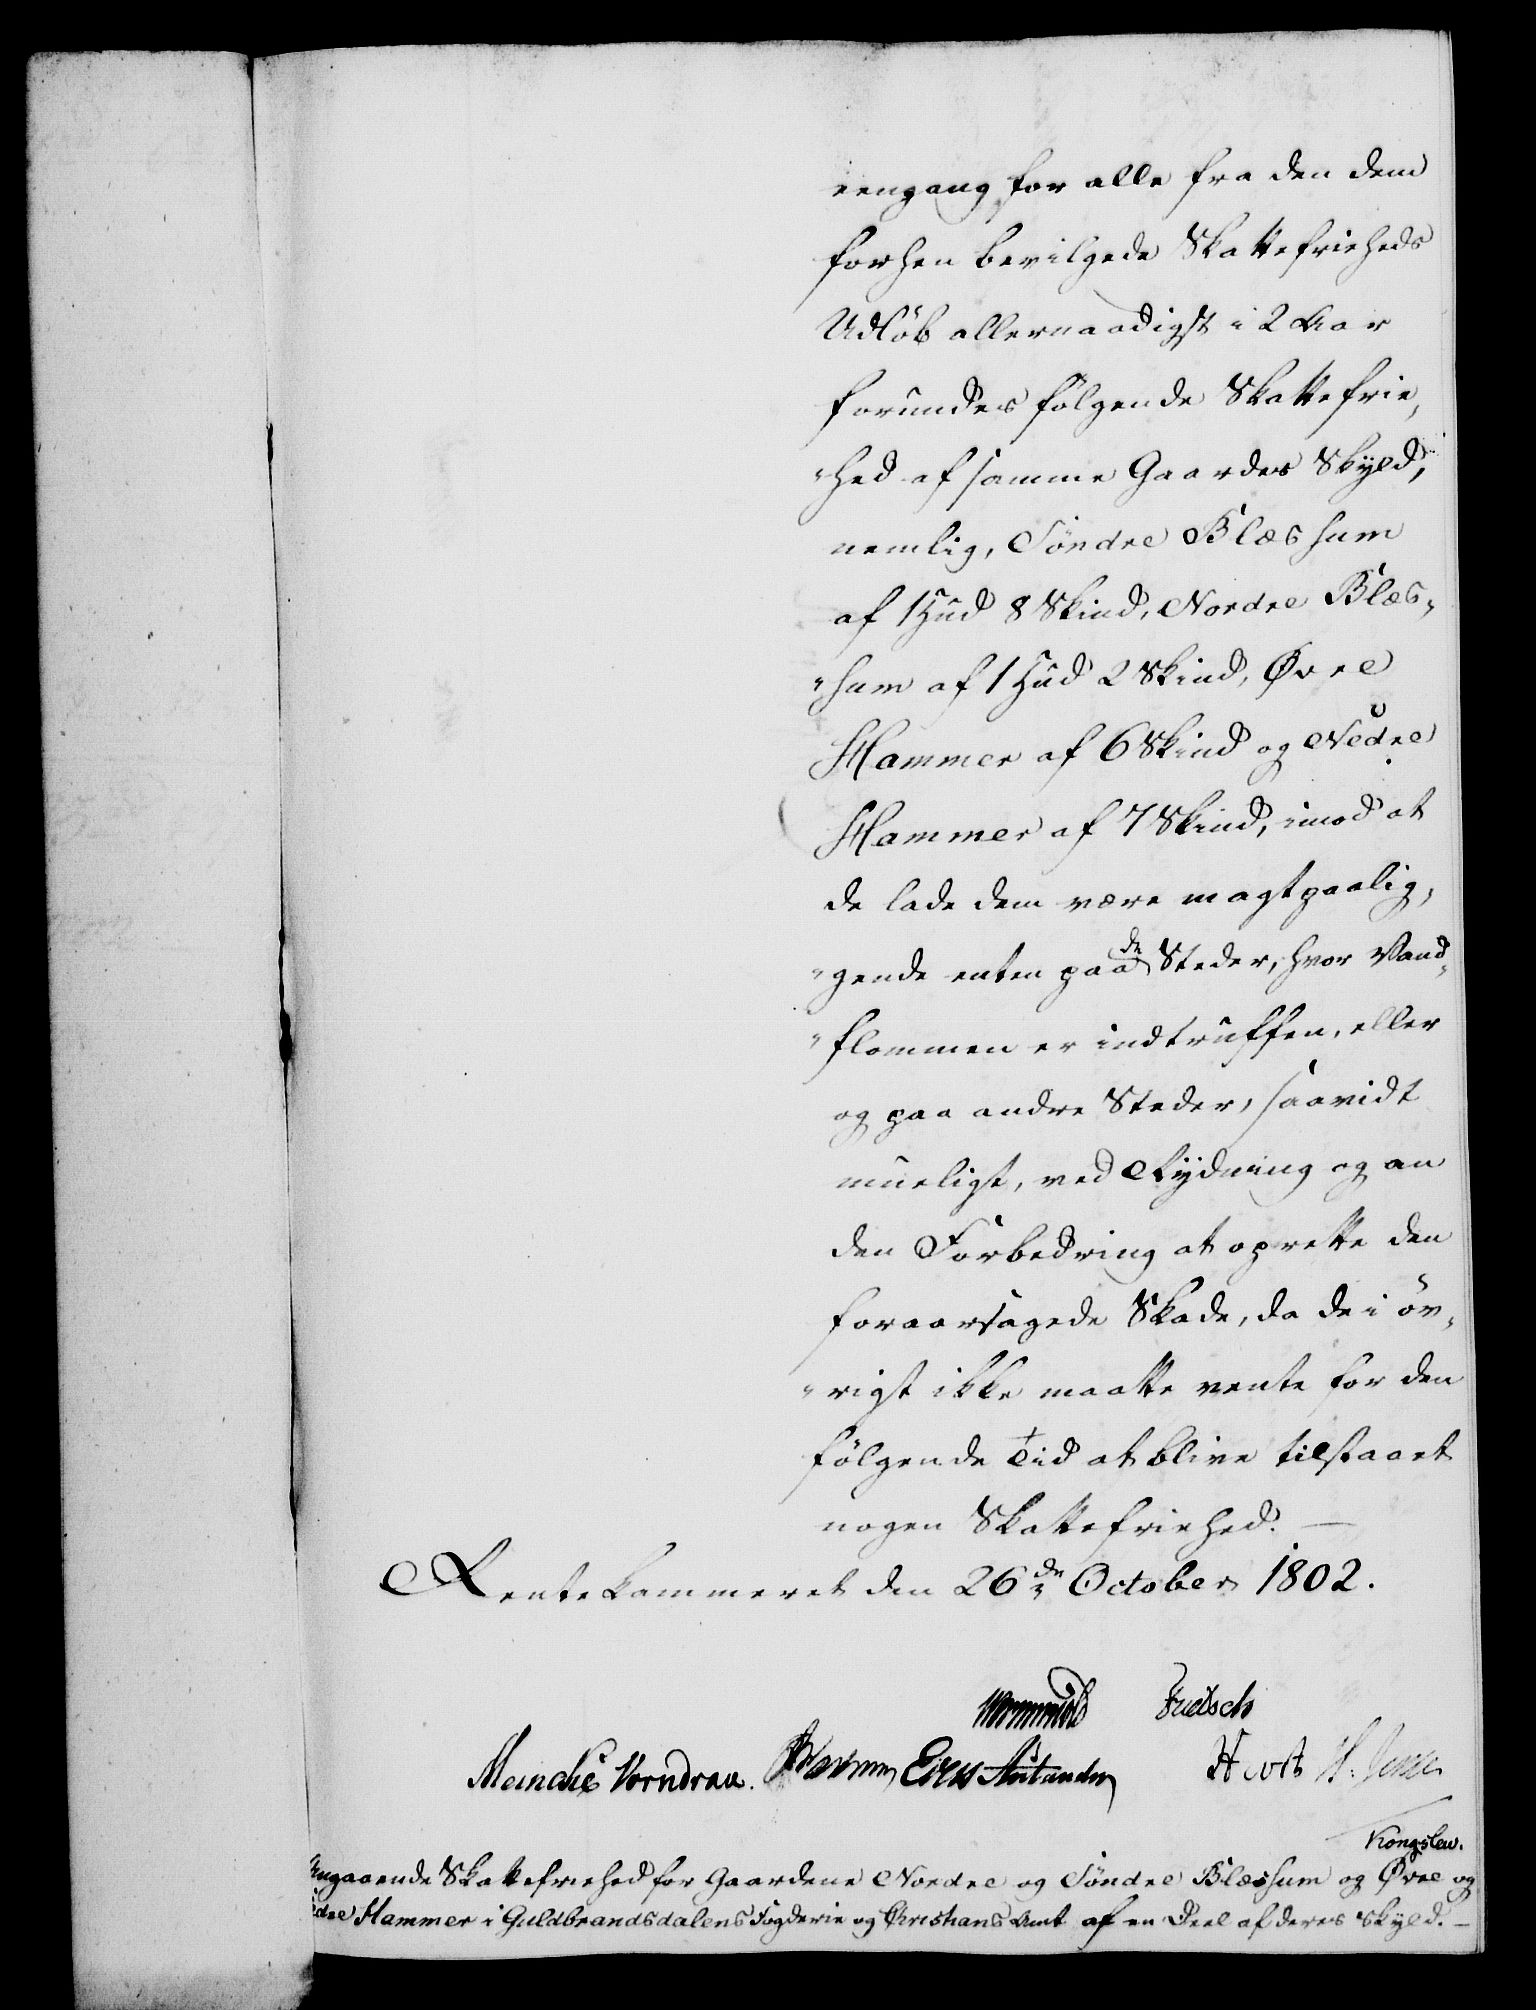 eengang for alle fra den dem
forhen bevilgede Skattefrieheds
Udløb allernaadigst i 2 Aar
forundes følgende Skattefrie,
"hed af samme Gaardes Skyld,
nemlig, Søndre Blæssum
af 1 Hud 8 Skind, Nordre Blæs"
"sum af 1 Hud 2 Skind, Øvre
Hammer af 6 Skind og Nedre
Hammer af 7 Skind, imod at
de lade dem være magtpaalig,
"gende enten paa de Steder, hvor Vand"
"flommen er indtruffen, eller
og paa andre Steder, saavidt
mueligt, ved Rydning og an
den Forbedring at oprette den
foraarsagede Skade, da de i øv,
"rigt ikke maatte vente for den
følgende Tid at blive tilstaaet
nogen Skattefriehed. —
Rentekammeret den 26de October 1802.
Wormskiold Fridsch
Meincke Vorndran. Eyers
Kongslew.
Angaaende Skattefriehed for Gaardene Nordre og Søndre Blæssum og Øvre og
Hammer i Guldbrandsdalens Fogderie og Christians Amt af en Deel af deres Skyld. —